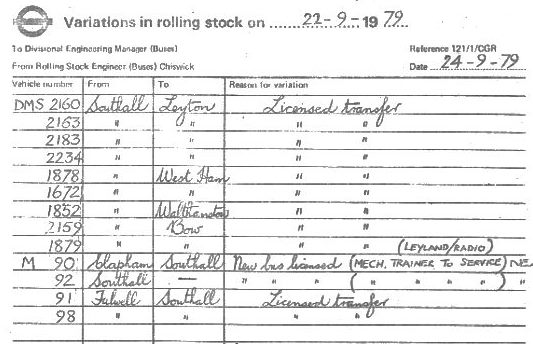 Variations in rolling stock on 22-9-19 79.
To Divisional Engineering Manager (Buses) Reference 121/1/CGR
From Rolling Stock Engineer (Buses) Chiswick Date 24-9-79
Vehicle number From To Reason for variation
DMS 2160 Southall Leyton Licensed transfer
2163 " " " "
2183 " " " "
2234 " " " "
1878 " West Ham " "
1672 " " " "
1852 " Walthamstow " "
2159 " Bow " "
1879 " " " " (LEYLAND/RADIO)
M 90 Clapham Southall New bus licensed (MECH. TRAINER TO SERVICE) NE
92 Southall — " " " ( " " " " ) "
91 Fulwell Southall Licensed transfer
98 " " " "